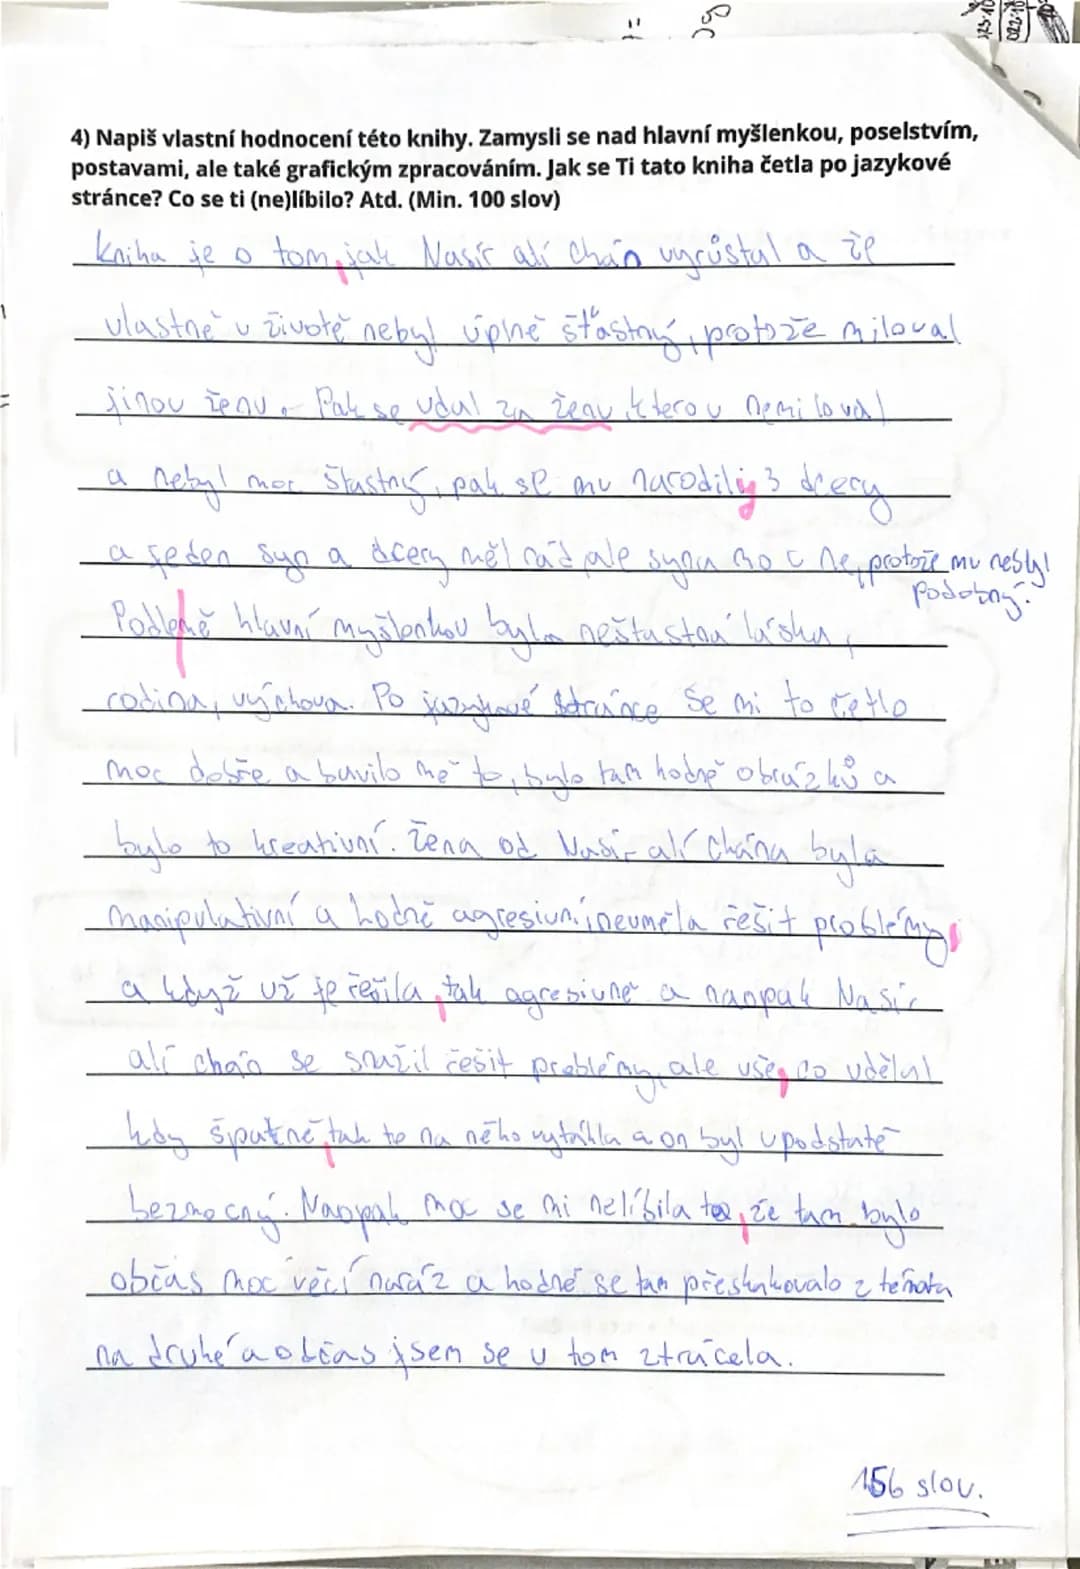 4) Napiš vlastní hodnocení této knihy. Zamysli se nad hlavní myšlenkou, poselstvím,
postavami, ale také grafickým zpracováním. Jak se Ti tato kniha četla po jazykové
stránce? Co se ti (ne)líbilo? Atd. (Min. 100 slov)
kniha je o tom, jak Nasir alí Chán vyrůstal a že
vlastně v životě nebyl úplně šťastný, protože miloval
jinou ženu. Pak se vdal za ženu, kterou nemiloval
a nebyl moc štastný, pak se mu narodiliy 3 dcery
a jeden syn a dcery měl rád, ale syna moc ne, protože mu nebyl
podobný.
Podlemě hlavní myšlenkou byla neštastná láska,
rodina, výchova. Po jazykové stránce se mi to četlo
moc dobře a bavilo mě to, bylo tam hodně obrázků a
bylo to kreativní. Žena od Nasir alí Chána byla
manipulativní a hodně agresivní, neuměla řešit problémy,
a když už je řešila, tak agresivně a naopak Nasir
alí chán se snažil řešit problémy, ale vše, co udělal
kdy špatně, tak to na něho vytáhla a on byl v podstatě
bezmocný. Naopak moc se mi nelíbila to, že tam bylo
občas moc věcí naráz a hodně se tam přeskakovalo z tématu
na druhé a občas jsem se v tom ztrácela.
156 slov.